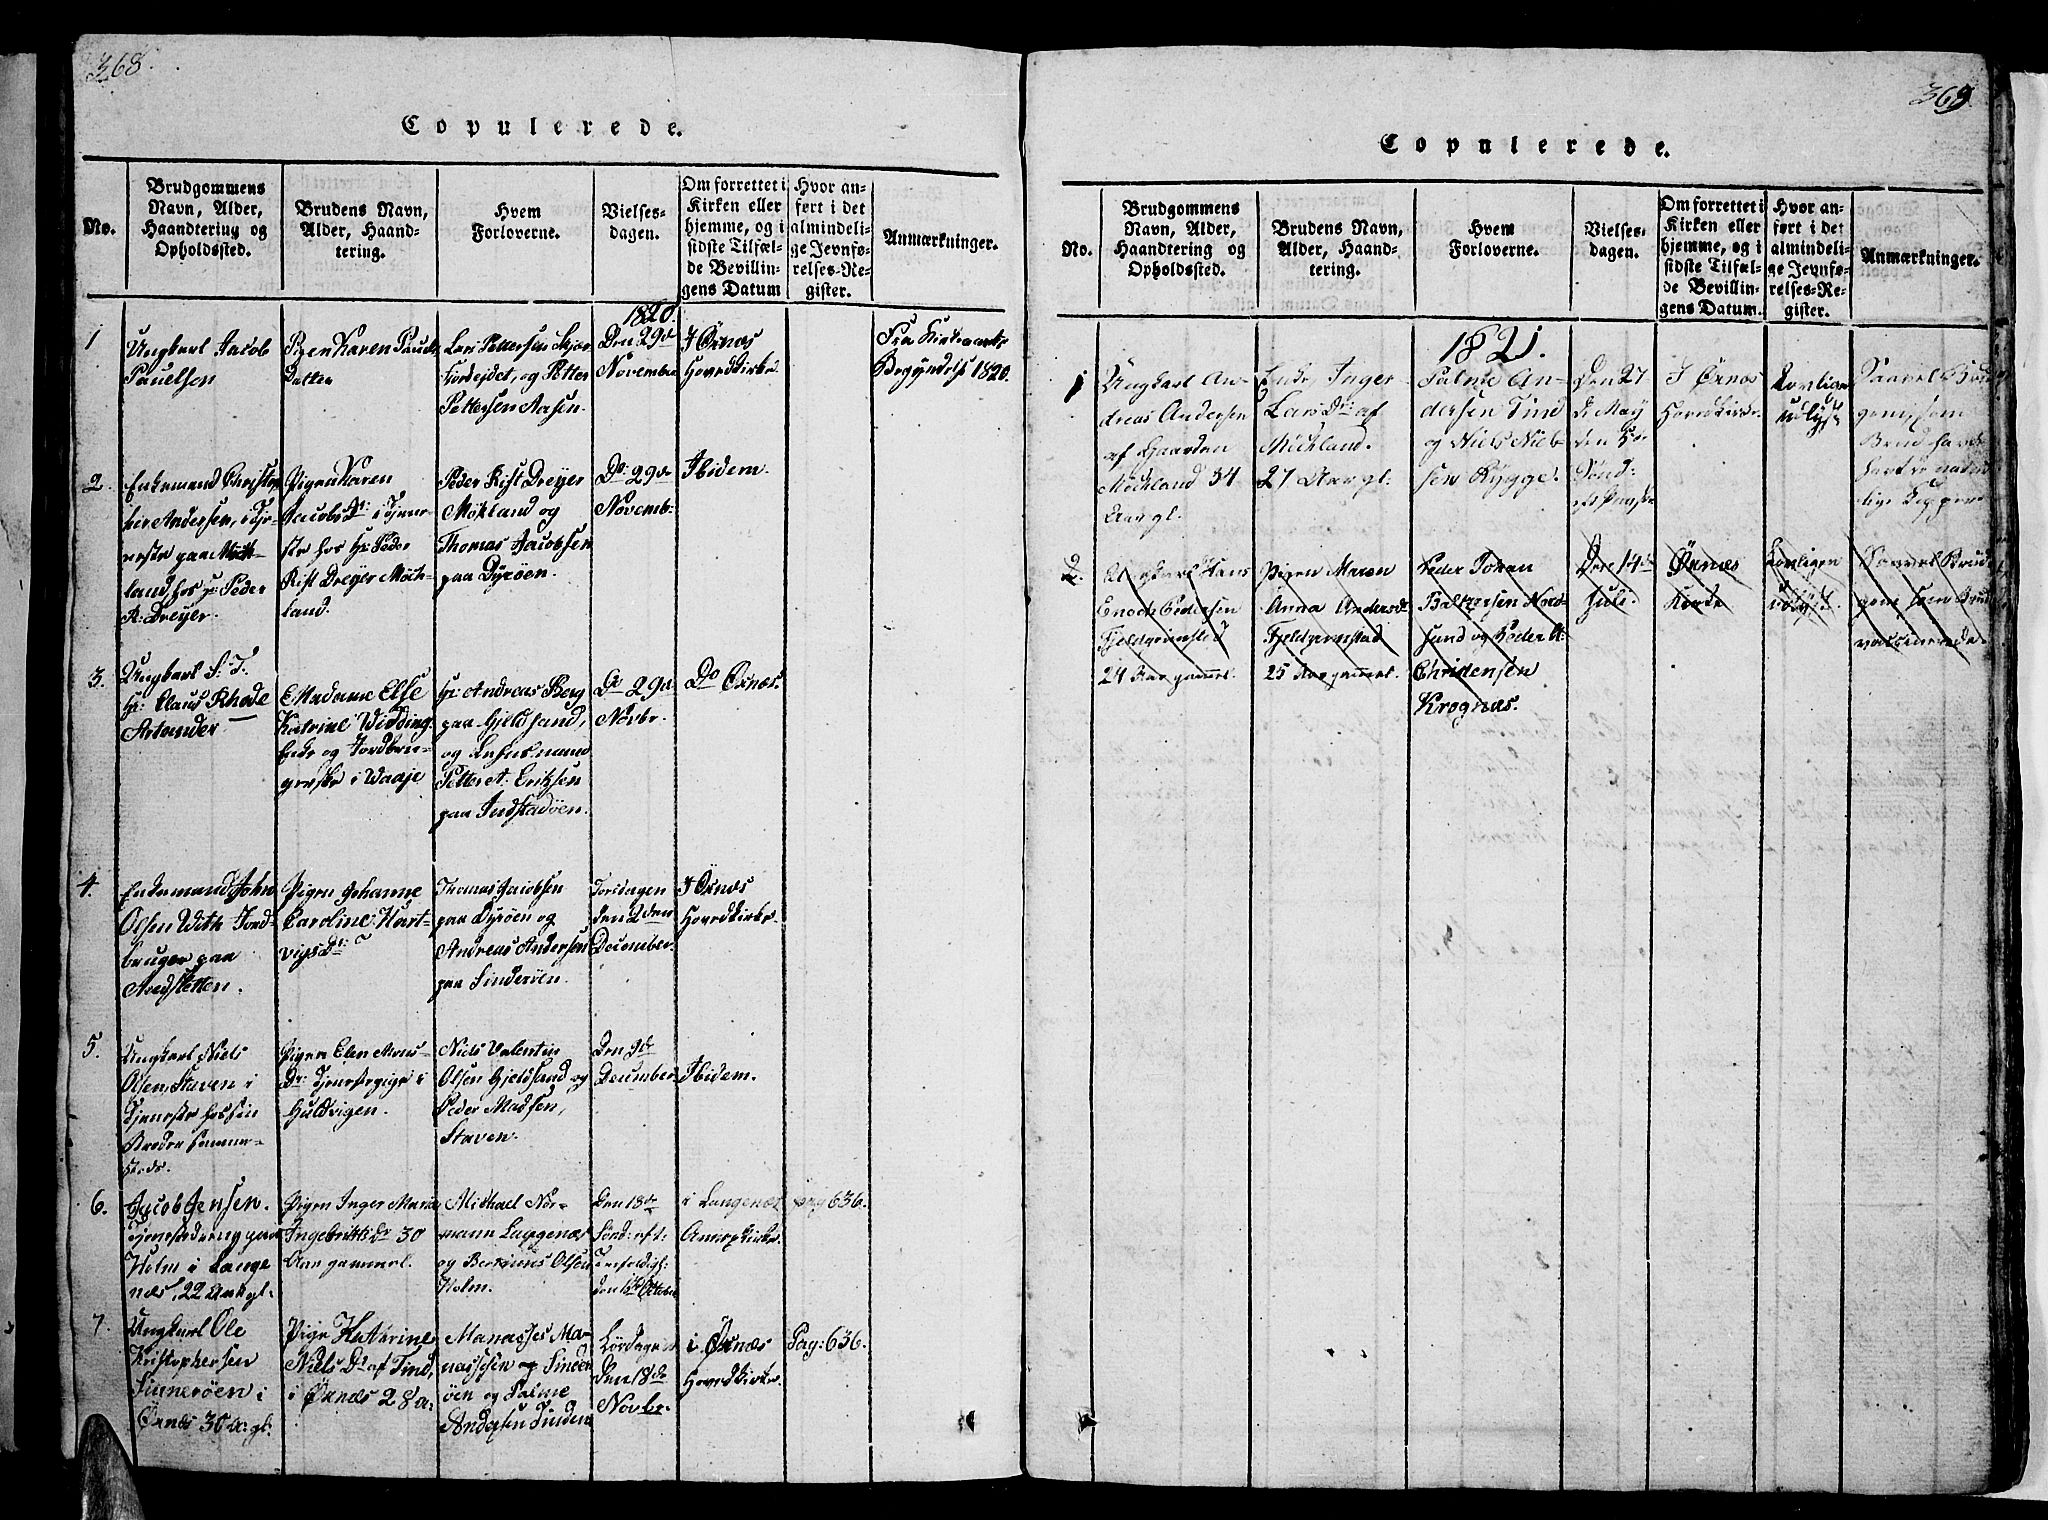 368.
Copulerede.
No.
Brudgommens
Navn, Alder,
Haandtering og
Opholdssted.
Brudens Navn,
Alder, Haand-
tering.
Hvem
Forloverne.
Vielses-
dagen.
Om forrettet i
Kirken eller
hjemme, og i
sidste Tilfæl-
de Bevillin-
gens Datum
Hvor an-
ført i det
almindeli-
ge Jevnfø-
relses-Re-
gister.
Anmærkninger.
1820.
1
Ungkarl Jacob
Pauelsen
Pigen Karen Pauels
Datter
Lars Pettersen
og Petter
Pettersen Aasen.
Den 29de
November
I Öxnæs
Hovedkirke
Fra Kirkeaarets
Begyndelse 1820.
2.
Enkemand
Andersen, i Tje-
neste paa Mök-
land, hos Hr: Peder
R: Dreyer.
Pigen Karen
Jacobs Dr: i Tjene-
ste hos Hr: Peder
Rist Dreyer Mök-
land.
Peder Rist Dreyer
Mökland og
Thomas Jacobsen
paa Dyröen.
Do 29de
Novemb:
Ibidem.
3.
Ungkarl S. T.
Hr: Claus Rhode
Artander
Madame Else
Katrine Widding
Enke og Jordbru-
gerske i Waaje
Hr: Andreas Berg
paa Gjeldsand,
og Lehnsmand
Petter A. Eriksen
paa Indstadöen.
Do 29de
Novbr.
Do Öxnæs.
4.
Enkemand John
Olsen With Jord-
bruger paa
Pigen Johanne
Caroline Hart-
vigsDr:
Thomas Jacobsen
paa Dyröen og
Andreas Andersen
paa Sinderöen.
Torsdagen
den 2den
December.
I Öxnæs
Hovedkirke.
5.
Ungkarl Niels
Olsen, Staven i
Tjeneste hos sin
Broder samme-
steds.
Pigen Elen Mons-
Dr: Tjenestepige i
Huldvigen.
Niels Valentin
Olsen Gjeldsand og
Peder Madsen,
Staven.
Den 9de
December
Ibidem.
6.
Jacob Jensen.
Tjenestedreng paa
Holm i Lange
næs, 22 Aar gl.
Pigen Inger Maria
Ingebrikts Dr 30
Aar gammel.
Michael Nor-
mann Laggenæs
og Olsen
Holm.
Den 18de
Sönd: eft:
Trefoldigh:
den October
i Langenæs
Annexkirke.
pag 636.
7.
Ungkarl Ole
Kristophersen
Sinneröen i
Öxnes 30 a: gl:
Pige Kathrine
Niels Dr af Tind,
i Öxnæs 28 a:
Manasses Ma-
nassesen og Sinder
öen og Salme
Andersen Tinden
Lördagen
Den 18de
Novbr.
i Öxnæs
Hovedkirke.
Pag: 636.
369.
Copulerede.
No.
Brudgommens
Navn, Alder,
Haandtering og
Opholdssted.
Brudens Navn,
Alder, Haand-
tering.
Hvem
Forloverne.
Vielses-
dagen.
Om forrettet i
Kirken eller
hjemme, og i
sidste Tilfæl-
de Bevillin-
gens Datum.
Hvor an-
ført i det
almindeli-
ge Jevnfø-
relses-Re-
gister.
Anmærkninger.
1821.
1
Ungkarl An-
dreas Andersen
af Gaarden
Möckland 34
Aar gl.
Enke, Inger
Lars Dr: af
Möckland.
27 Aar gl:
Salme An-
dersen Tind
og Niels Niel-
sen Rygge.
Den 27
de May
den 5te
Sönd:
eft Paaske
I Öxnæs
Hovedkirke.
Lovligen
udlyst
Saavel Brud
gom, som
Brud havde
havt de natur-
lige Kopper
2.
Ungkarl Hans
Enoch Pedersen
Fjeldgrimstad
24 Aar gammel.
Pigen Maren
Anna Andersdr
Fjeldgrimstad
25 Aar gammel.
Peder Johan
Baltzersen Nord-
sand og Peder A:
Christensen
Krognæs.
Den 14de
Juli.
Öxnæs
Kirke
Lovligen
udlyst.
Saavel Brud
gom som Brud
vaccinerede.